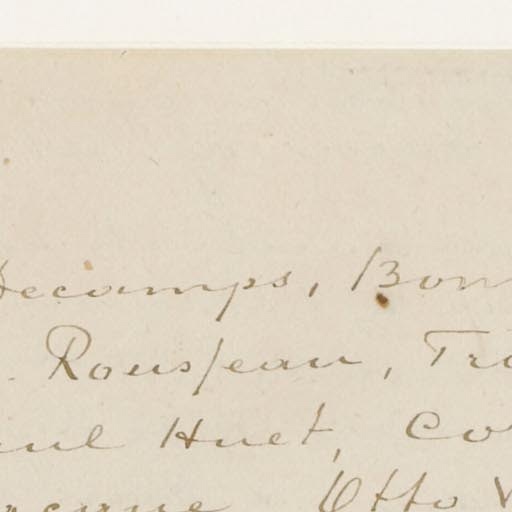 Decamps, Bon
Rousseau, Tro
aul Huet, Co
Otto V